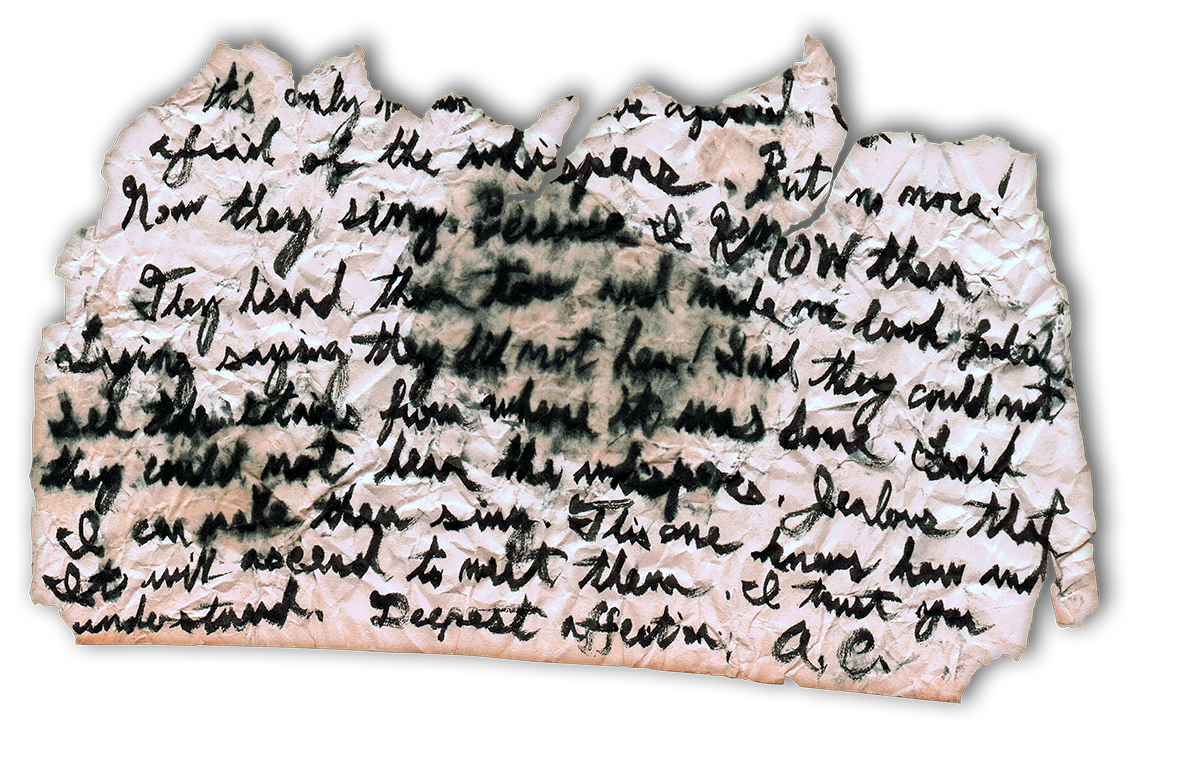 it's only be afraid.
afraid of the whispers. But no more!
Now they sing. Because I KNOW them.
They heard them too and made me look foolish
saying they did not hear! Said they could not
see the stains from where it was done. Said
they could not hear the whispers. Jealous that
I can make them sing. This one knows how and
It will ascend to melt them. I trust you
understand. Deepest affection, A. C.